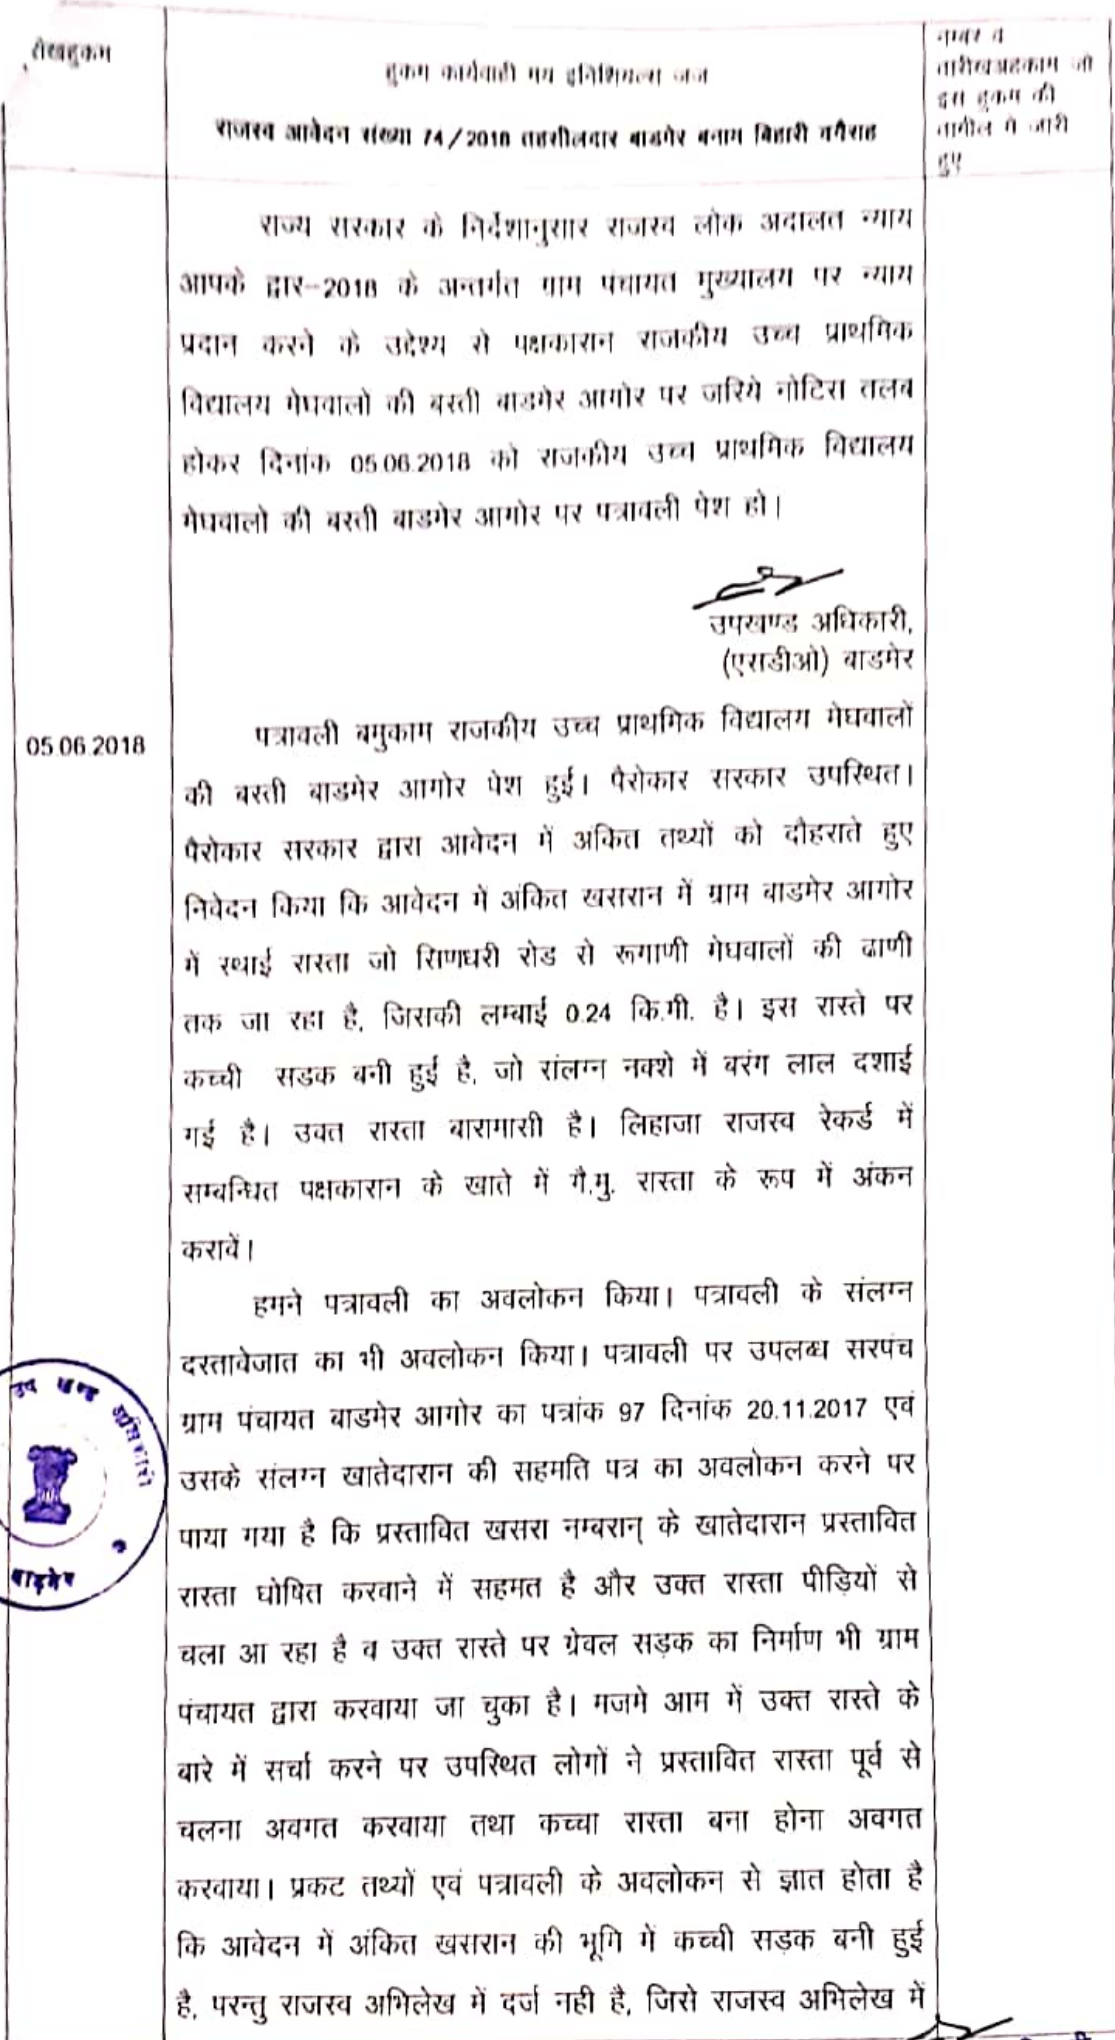 तारीखहुकम
हुकम कार्यवाही मय इनिशियल्स जज
राजस्व आवेदन संख्या 74/2018 तहसीलदार बाडमेर बनाम बिहारी वगैराह
नम्बर व
तारीखअहकाम जो
इस हुकम की
तामील में जारी
हुए
राज्य सरकार के निर्देशानुसार राजस्व लोक अदालत न्याय
आपके द्वार-2018 के अन्तर्गत ग्राम पंचायत मुख्यालय पर न्याय
प्रदान करने के उद्देश्य से पक्षकारान राजकीय उच्च प्राथमिक
विद्यालय मेघवालो की बस्ती बाडमेर आगोर पर जरिये नोटिस तलब
होकर दिनांक 05.06.2018 को राजकीय उच्च प्राथमिक विद्यालय
मेघवालो की बस्ती बाडमेर आगोर पर पत्रावली पेश हो।
उपखण्ड अधिकारी,
(एसडीओ) बाडमेर
05.06.2018
पत्रावली बमुकाम राजकीय उच्च प्राथमिक विद्यालय मेघवालों
की बस्ती बाडमेर आगोर पेश हुई। पैरोकार सरकार उपस्थित।
पैरोकार सरकार द्वारा आवेदन में अंकित तथ्यों को दौहराते हुए
निवेदन किया कि आवेदन में अंकित खसरान में ग्राम बाडमेर आगोर
में स्थाई रास्ता जो सिणधरी रोड से रूगाणी मेघवालों की ढाणी
तक जा रहा है, जिसकी लम्बाई 0.24 कि.मी. है। इस रास्ते पर
कच्ची सडक बनी हुई है, जो संलग्न नक्शे में बरंग लाल दशाई
गई है। उक्त रास्ता बारामासी है। लिहाजा राजस्व रेकर्ड में
सम्बन्धित पक्षकारान के खाते में गै.मु. रास्ता के रूप में अंकन
करावें।
हमने पत्रावली का अवलोकन किया। पत्रावली के संलग्न
दस्तावेजात का भी अवलोकन किया। पत्रावली पर उपलब्ध सरपंच
ग्राम पंचायत बाडमेर आगोर का पत्रांक 97 दिनांक 20.11.2017 एवं
उसके संलग्न खातेदारान की सहमति पत्र का अवलोकन करने पर
पाया गया है कि प्रस्तावित खसरा नम्बरान् के खातेदारान प्रस्तावित
रास्ता घोषित करवाने में सहमत है और उक्त रास्ता पीड़ियों से
चला आ रहा है व उक्त रास्ते पर ग्रेवल सड़क का निर्माण भी ग्राम
पंचायत द्वारा करवाया जा चुका है। मजमे आम में उक्त रास्ते के
बारे में सर्चा करने पर उपस्थित लोगों ने प्रस्तावित रास्ता पूर्व से
चलना अवगत करवाया तथा कच्चा रास्ता बना होना अवगत
करवाया। प्रकट तथ्यों एवं पत्रावली के अवलोकन से ज्ञात होता है
कि आवेदन में अंकित खसरान की भूमि में कच्ची सड़क बनी हुई
है, परन्तु राजस्व अभिलेख में दर्ज नही है, जिसे राजस्व अभिलेख में
उप खण्ड अधिकारी
बाड़मेर